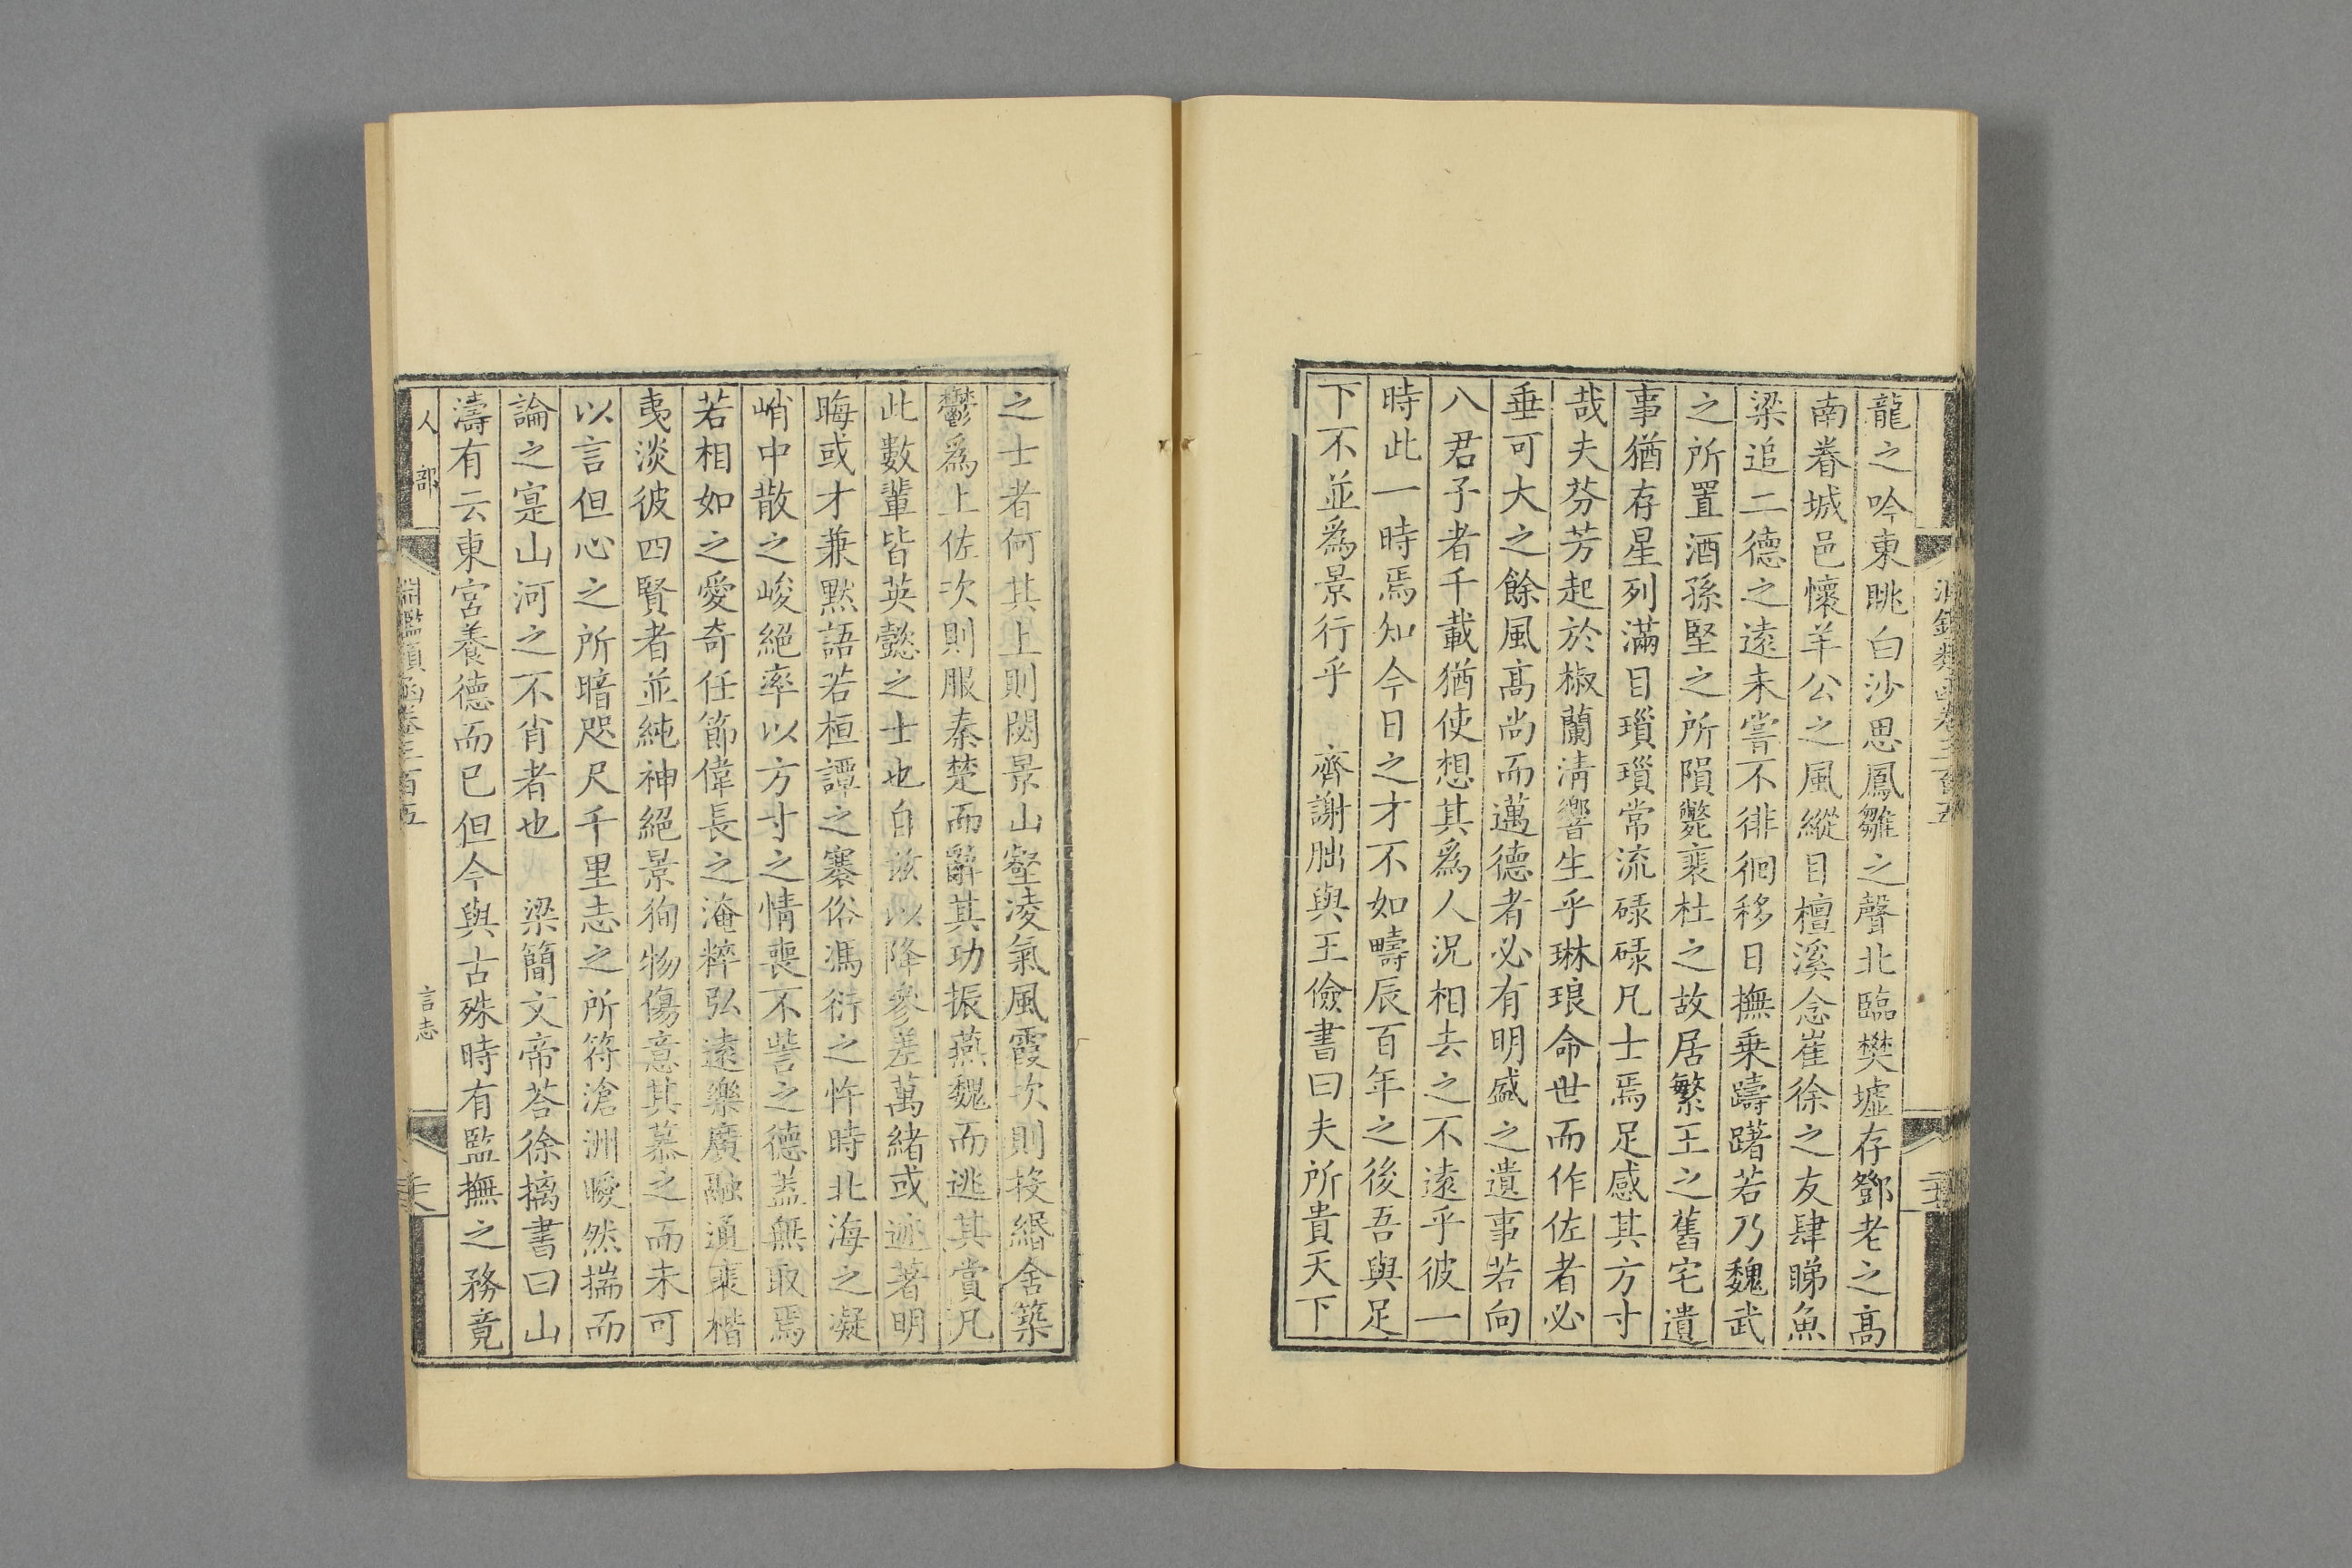 龍之吟東眺白沙思鳳雛之聲北臨樊墟存鄧老之高
南眷城邑懷羊公之風縱目檀溪念崔徐之友肆睇魚
梁追二德之遠未嘗不徘徊移日撫乗躊躇若乃魏武
之所置酒孫堅之所隕斃裴杜之故居繁王之舊宅遺
事猶存星列滿目瑣瑣常流碌碌凡士焉足感其方寸
哉夫芬芳起於椒蘭清響生乎琳琅命世而作佐者必
垂可大之餘風高尚而邁德者必有明盛之遺事若向
八君子者千載猶使想其爲人況相去之不遠乎彼一
時此一時焉知今日之才不如疇辰百年之後吾與足
下不並爲景行乎　齊謝朏與王儉書曰夫所貴天下
之士者何其上則閟景山壑凌氣風霞次則投緡舍築
鬱爲上佐次則服秦楚而辭其功振燕魏而逃其賞凡
此數輩皆英懿之士也自茲以降參差萬緒或迹著明
晦或才兼黙語若桓譚之褰俗馮衍之忤時北海之凝
峭中散之峻絕率以方寸之情喪不訾之德盖無取焉
若相如之愛奇任節偉長之淹粹弘遠樂廣融通裴楷
夷淡彼四賢者並純神絕景徇物傷意其慕之而未可
以言但心之所暗咫尺千里志之所符滄洲曖然揣而
論之寔山河之不肖者也　梁簡文帝荅徐摛書曰山
濤有云東宮養德而已但今與古殊時有監撫之務竟
人部
淵鑑類函卷三百五
言志